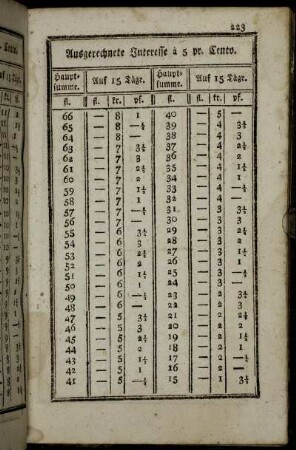 223
Ausgerechnete Interesse à 5 pr. Cento.
Haupt-summe. Auf 15 Täge. Haupt-summe. Auf 15 Täge.
fl. fl. kr. pf. fl. fl. kr. pf.
66 — 8 1 40 — 5 —
65 — 8 —½ 39 — 4 3½
64 — 8 — 38 — 4 3
63 — 7 3½ 37 — 4 2½
62 — 7 3 36 — 4 2
61 — 7 2½ 35 — 4 1½
60 — 7 2 34 — 4 1
59 — 7 1½ 33 — 4 —½
58 — 7 1 32 — 4 —
57 — 7 —½ 31 — 3 3½
56 — 7 — 30 — 3 3
55 — 6 3½ 29 — 3 2½
54 — 6 3 28 — 3 2
53 — 6 2½ 27 — 3 1½
52 — 6 2 26 — 3 1
51 — 6 1½ 25 — 3 —½
50 — 6 1 24 — 3 —
49 — 6 —½ 23 — 2 3½
48 — 6 — 22 — 2 3
47 — 5 3½ 21 — 2 2½
46 — 5 3 20 — 2 2
45 — 5 2½ 19 — 2 1½
44 — 5 2 18 — 2 1
43 — 5 1½ 17 — 2 —½
42 — 5 1 16 — 2 —
41 — 5 —½ 15 — 1 3½